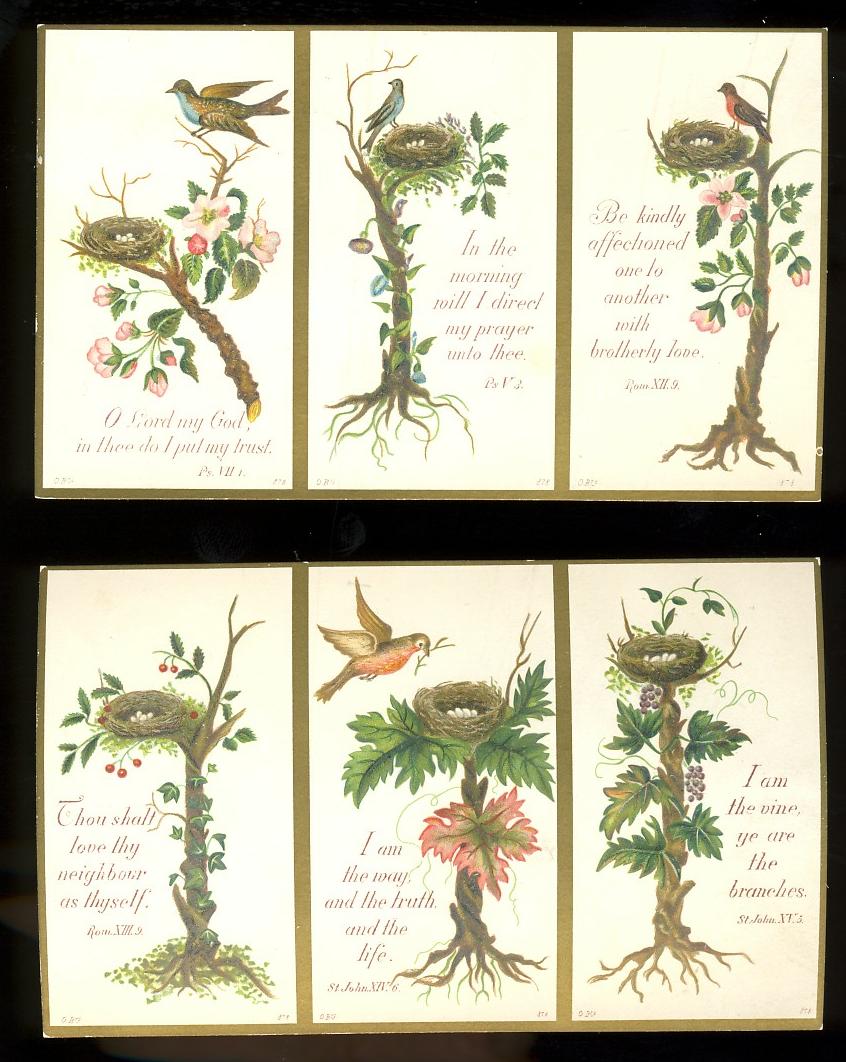 O Lord my God,
in thee do I put my trust.
Ps. VII 1.
In the
morning
will I direct
my prayer
unto thee.
Ps V. 3.
Be kindly
affectioned
one to
another
with
brotherly love.
Rom XII. 9.
Thou shalt
love thy
neighbour
as thyself.
Rom. XIII. 9.
I am
the way,
and the truth,
and the
life.
St. John. XIV. 6.
I am
the vine,
ye are
the
branches.
St. John. XV. 5.